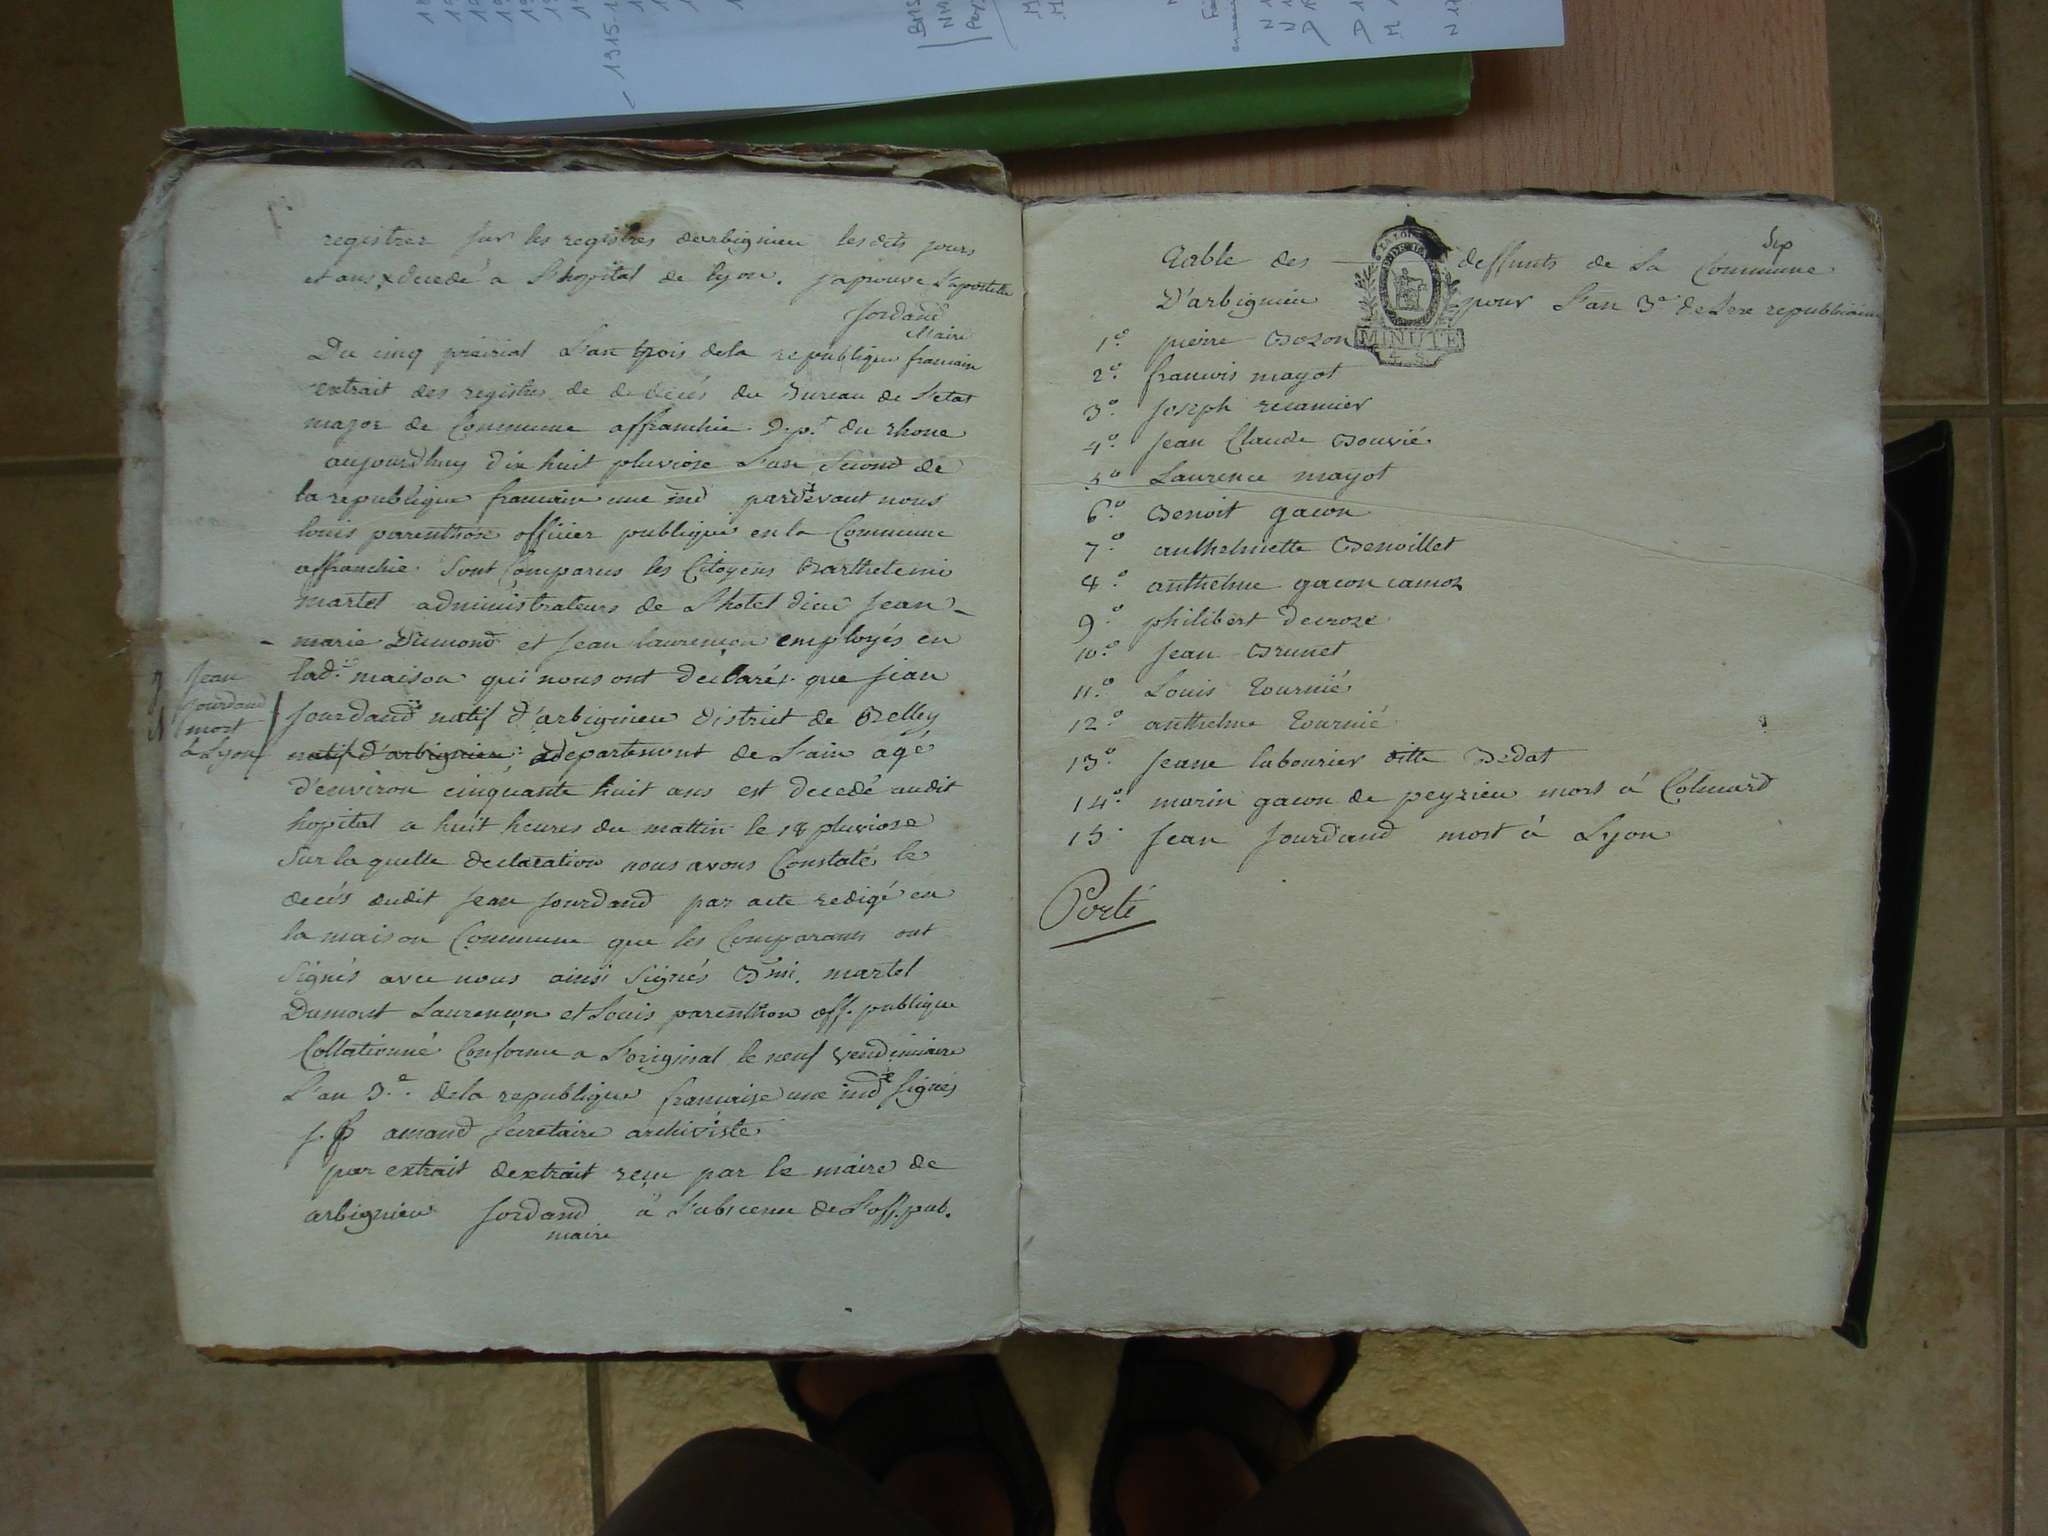 registrer sur les registres darbignieu lesdits jours
et ans, x decedé a l'hopital de lyon. japrouve l'apostille
Jordand
Maire
Du cinq préirial l'an trois de la republique francaise
extrait des registres de de décés du Bureau de l'etat
major de Commune affranchie. Dpt. du rhone
aujourdhuy dix huit pluviose l'an second de
la republique francaise une ind pardevant nous
louis parenthon officier publique en la Commune
affranchie. sont Comparus les Citoyens Barthelemi
martel administrateurs de l'hotel dieu Jean-
marie Dumond et Jean laurençon employés en
lade. maison qui nous ont declaré. que jean
Jourdand natif d'arbignieu district de Belley
natif d'arbignieu departement de l'ain agé
d'environ cinquante huit ans est decedé audit
hopital a huit heures du mattin le 18 pluviose
sur laquelle declaration nous avons Constaté le
decés dudit Jean Jourdand par acte redigé en
la maison Commune que les Comparans ont
signés avec nous ainsi signés Bmi. martel
Dumont Laurençon et Louis parenthon off. publique
Collationné Conforme a l'original le neuf vendimiaire
l'an 3e. de la republique francaise une ind signés
j. B amand secretaire archiviste
par extrait dextrait reçu par le maire de
arbignieu Jordand a l'absence de l'off. pub.
maire
Jean
Jourdand
mort
a Lyon
dix
Table des deffunts de la Commune
D'arbignieu pour l'an 3e de l'ere republicaine
MINUTE
1o. pierre Bozon
2o. francois mayot
3o. Joseph recamier
4o. Jean Claude Bouvié
5o Laurence mayot
6o. Benoit gacon
7o. anthelmette Benoillet
8o. anthelme gacon camoz
9o. philibert decroze
10o. Jean Brunet
11o. Louis Tournié
12o. anthelme Tournié
13o Jeane labourier ditte Bedat
14o. marin gacon de peyzieu mort á Colmard
15. Jean Jourdand mort á Lyon
Porté